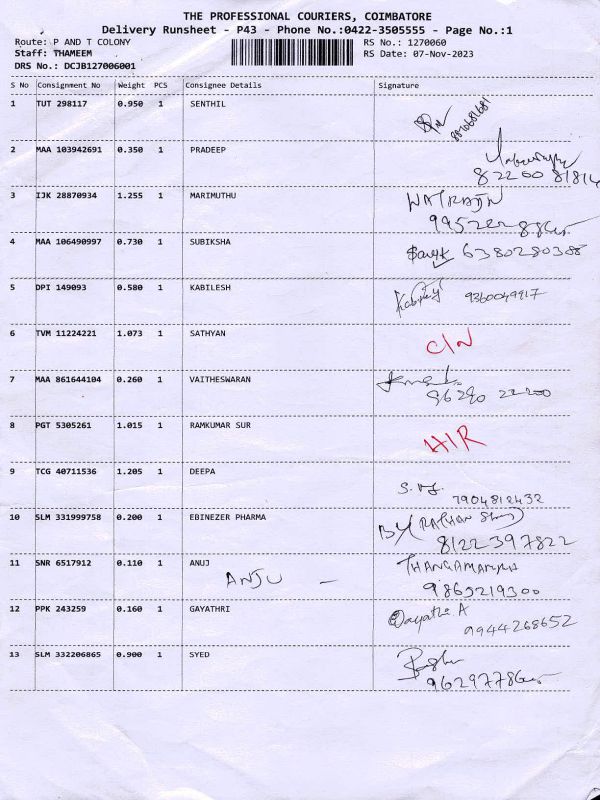 THE PROFESSIONAL COURIERS, COIMBATORE
Delivery Runsheet - P43 - Phone No.:0422-3505555 - Page No.:1
Route: P AND T COLONY RS No.: 1270060
Staff: THAMEEM RS Date: 07-Nov-2023
DRS No.: DCJB127006001
S No Consignment No Weight PCS Consignee Details Signature
1 TUT 298117 0.950 1 SENTHIL
2 MAA 103942691 0.350 1 PRADEEP
82200 81814
3 IJK 28870934 1.255 1 MARIMUTHU
4 MAA 106490997 0.730 1 SUBIKSHA 6380280388
5 DPI 149093 0.580 1 KABILESH 9360049917
6 TVM 11224221 1.073 1 SATHYAN C/N
7 MAA 861644104 0.260 1 VAITHESWARAN
96290 22200
8 PGT 5305261 1.015 1 RAMKUMAR SUR H/R
9 TCG 40711536 1.205 1 DEEPA
7904812432
10 SLM 331999758 0.200 1 EBINEZER PHARMA
8122397822
11 SNR 6517912 0.110 1 ANUJ
ANJU -
9865219300
12 PPK 243259 0.160 1 GAYATHRI Gayathri A
9944268652
13 SLM 332206865 0.900 1 SYED